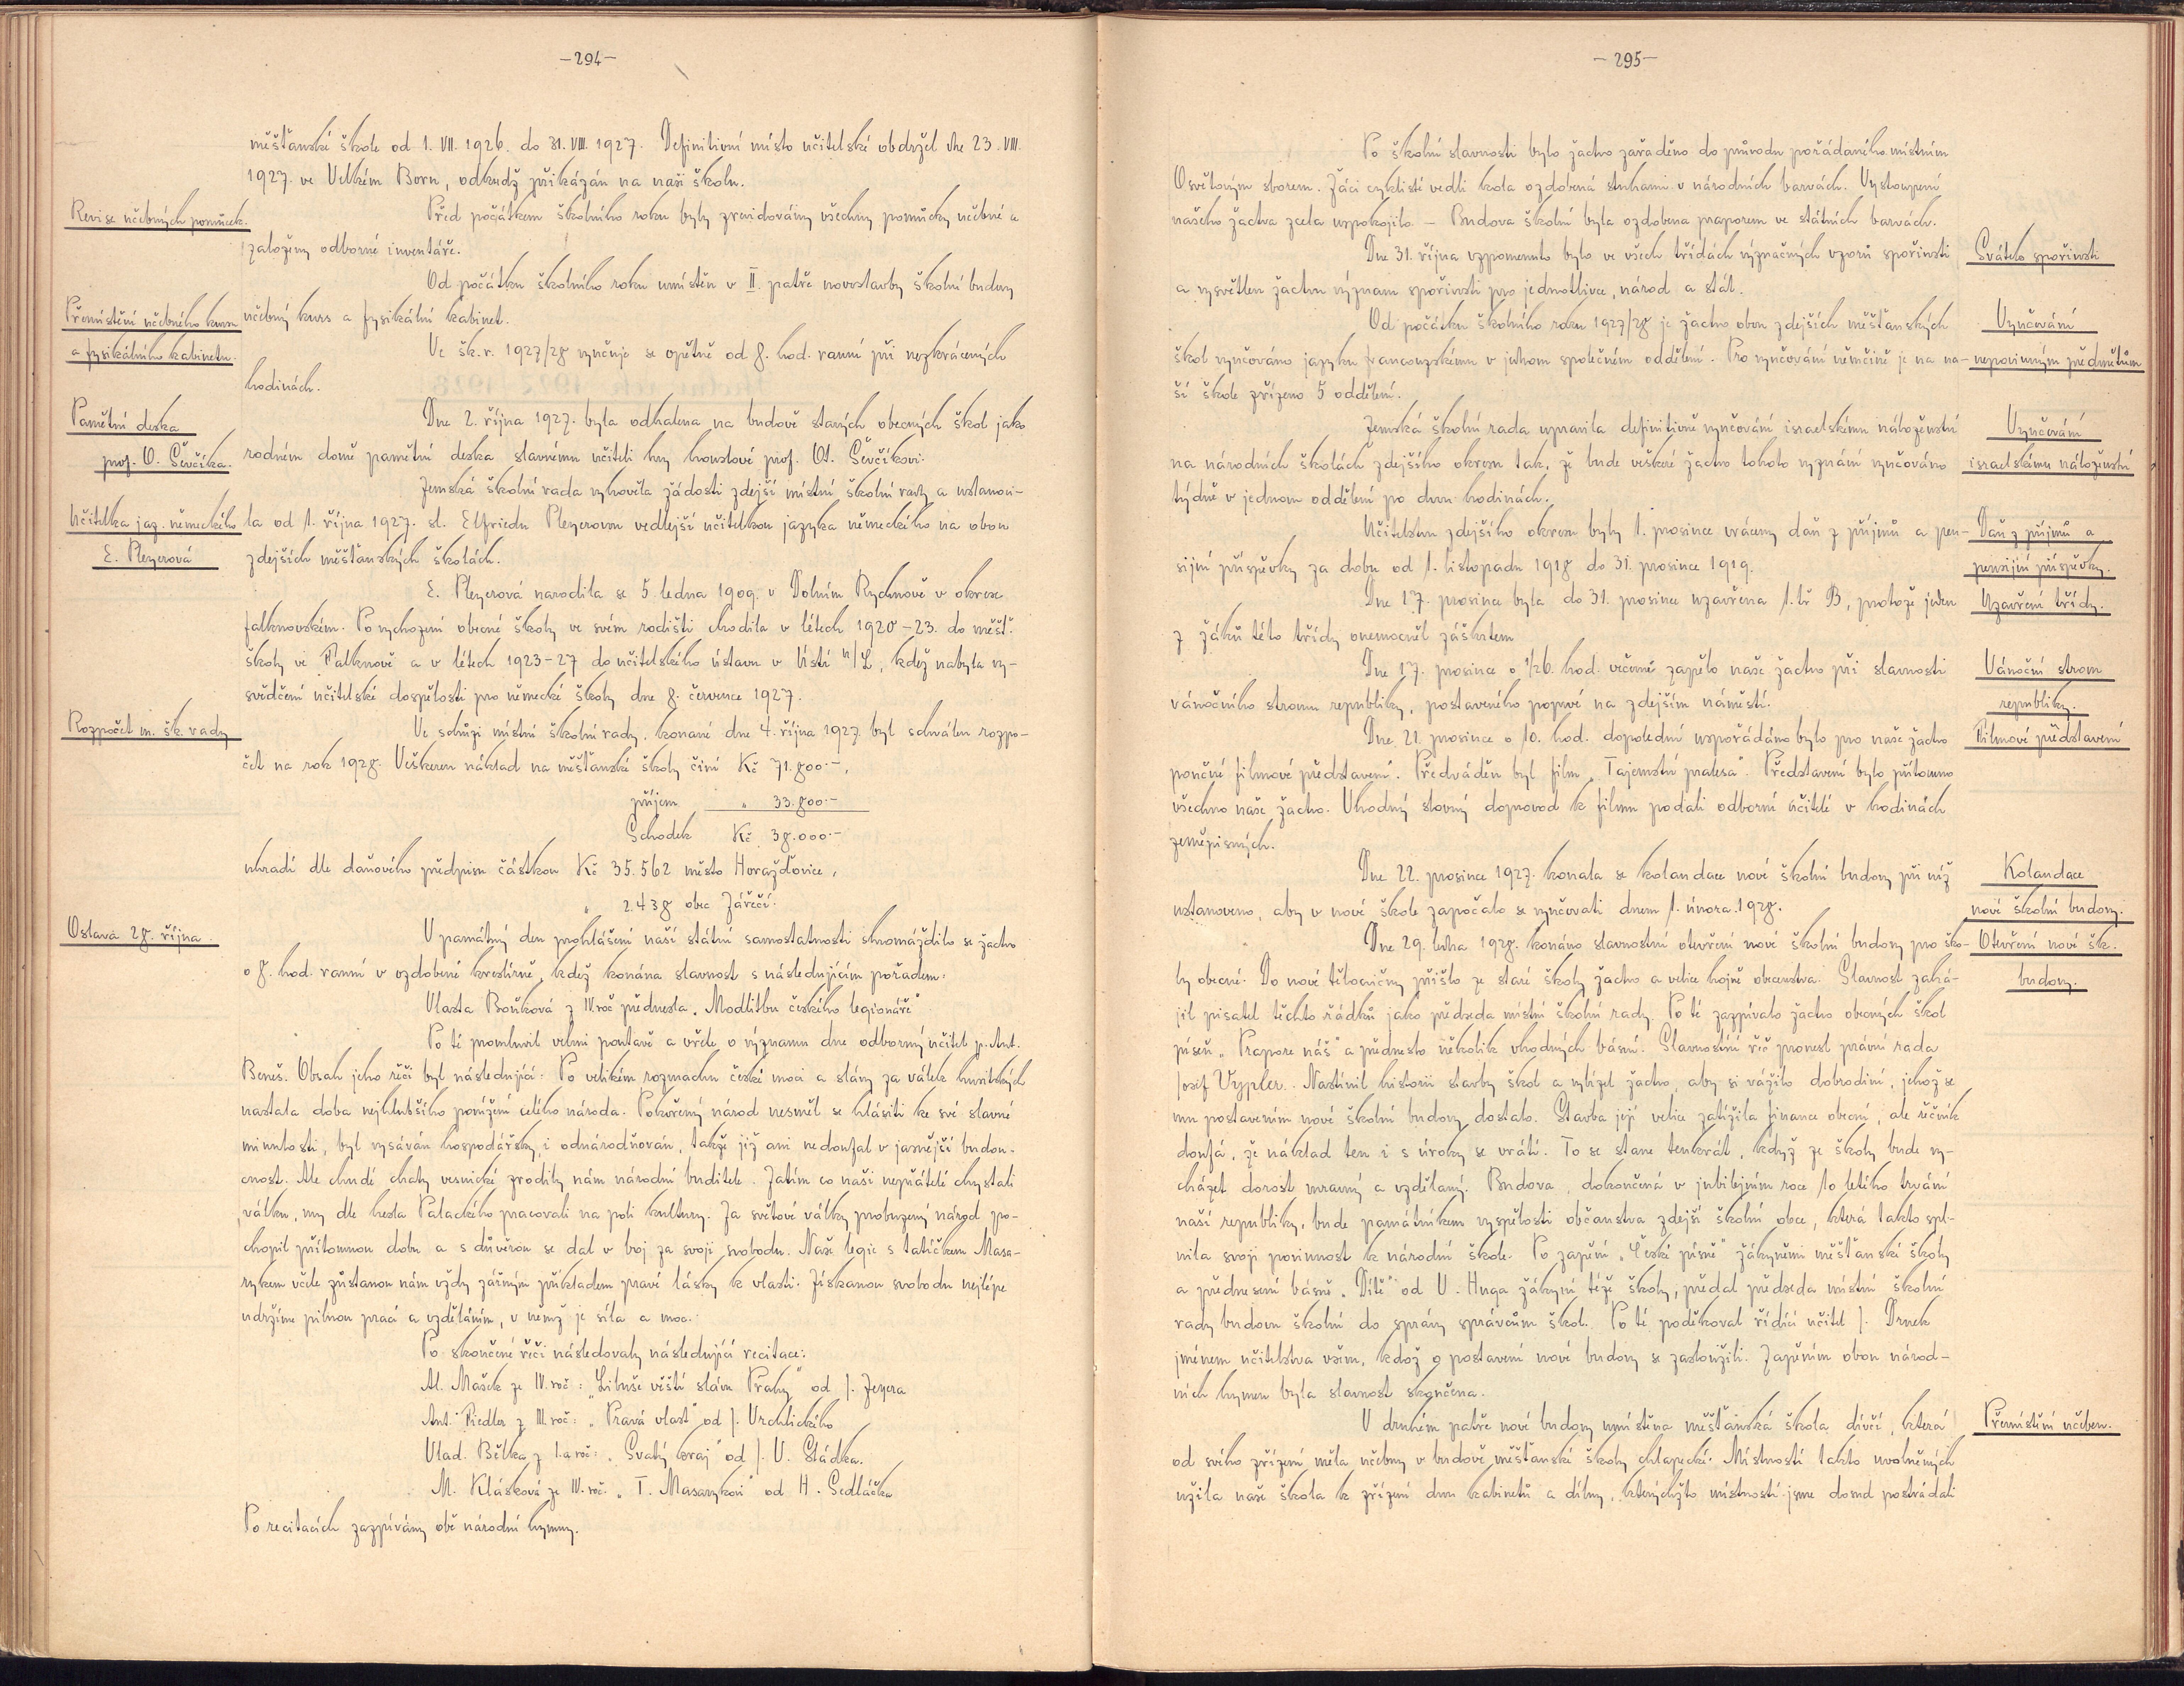 -294-
měšťanské škole od 1. VII. 1926. do 31. VIII. 1927. Definitivní místo učitelské obdržel dne 23. VIII.
1927. ve Velkém Boru, odkudž přikázán na naši školu.
Revise učebných pomůcek.
Před počátkem školního roku byly zrevidovány všechny pomůcky učebné a
založeny odborné inventáře.
Od počátku školního roku umístěn v II. patře novostavby školní budovy
Přemístění učebného kursu
učebný kurs a fysikální kabinet.
a fysikálního kabinetu.
Ve šk. r. 1927/28 vyučuje se opětně od 8. hod. ranní při nezkrácených
hodinách.
Pamětní deska
Dne 2. října 1927. byla odhalena na budově starých obecných škol jako
prof. O. Ševčíka.
rodném domě pamětní deska slavnému učiteli hry houslové prof. Ot. Ševčíkovi.
Zemská školní rada vyhověla žádosti zdejší místní školní rady a ustanovi-
Učitelka jaz. německého
la od 1. října 1927. sl. Elfriedu Pleyerovou vedlejší učitelkou jazyka německého na obou
E. Pleyerová
zdejších měšťanských školách.
E. Pleyerová narodila se 5. ledna 1909. v Dolním Rychnově v okrese
falknovském. Po vychození obecné školy ve svém rodišti chodila v létech 1920-23. do měšť.
školy ve Falknově a v létech 1923-27 do učitelského ústavu v Ústí n/L, kdež nabyla vy-
svědčení učitelské dospělosti pro německé školy dne 8. července 1927.
Rozpočet m. šk. rady
Ve schůzi místní školní rady, konané dne 4. října 1927. byl schválen rozpo-
čet na rok 1928. Veškeren náklad na měšťanské školy činí Kč 71.800.-,
příjem " 33.800.-
Schodek Kč 38.000.-
uhradí dle daňového předpisu částkou Kč 35.562 město Horažďovice,
" 2.438 obec Zářečí.
Oslava 28. října.
V památný den prohlášení naší státní samostatnosti shromáždilo se žactvo
o 8. hod. ranní v ozdobené kreslírně, kdež konána slavnost s následujícím pořadem:
Vlasta Boušková z IV. roč přednesla „Modlitbu českého legionáře"
Po té promluvil velmi poutavě a vřele o významu dne odborný učitel p. Ant.
Beneš. Obsah jeho řeči byl následující: Po velikém rozmachu české moci a slávy za válek husitských
nastala doba nejhlubšího ponížení celého národa. Pokořený národ nesměl se hlásiti ke své slavné
minulosti, byl vysáván hospodářsky, i odnárodňován, takže již ani nedoufal v jasnější budou-
cnost. Ale chudé chaty vesnické zrodily nám národní buditele. Zatím co naši nepřátelé chystali
válku, my dle hesla Palackého pracovali na poli kultury. Za světové války probuzený národ po-
chopil přítomnou dobu a s důvěrou se dal v boj za svoji svobodu. Naše legie s tatíčkem Masa-
rykem včele zůstanou nám vždy zářným příkladem pravé lásky k vlasti. Získanou svobodu nejlépe
udržíme pilnou prací a vzděláním, v němž je síla a moc.
Po skončené řeči následovaly následující recitace:
Al. Mašek ze IV. roč: „Libuše věští slávu Prahy" od J. Zeyera
Ant. Fiedler z III. roč: „Pravá vlast" od J. Vrchlického
Vlad. Bělka z I.a roč: „Svatý kraj" od J. V. Sládka.
M. Klásková ze IV. roč. „T. Masarykovi" od H. Sedláčka
Po recitacích zazpívány obě národní hymny.
-295-
Po školní slavnosti bylo žactvo zařaděno do průvodu pořádaného místním
Osvětovým sborem. Žáci cyklisté vedli kola ozdobená stuhami v národních barvách. Vystoupení
našeho žactva zcela uspokojilo. - Budova školní byla ozdobena praporem ve státních barvách.
Dne 31. října vzpomenuto bylo ve všech třídách význačných vzorů spořivosti
Svátek spořivosti
a vysvětlen žactvu význam spořivosti pro jednotlivce, národ a stát.
Od počátku školního roku 1927/28 je žactvo obou zdejších měšťanských
Vyučování
škol vyučováno jazyku francouzskému v jednom společném oddělení. Pro vyučování němčině je na na-
nepovinným předmětům
ší škole zřízeno 5 oddělení.
Zemská školní rada upravila definitivně vyučování israelskému náboženství
Vyučování
na národních školách zdejšího okresu tak, že bude veškeré žactvo tohoto vyznání vyučováno
israelskému náboženství
týdně v jednom oddělení po dvou hodinách.
Učitelstvu zdejšího okresu byly 1. prosince vráceny daň z příjmů a pen-
Daň z příjmů a
sijní příspěvky za dobu od 1. listopadu 1918 do 31. prosince 1919.
pensijní příspěvky.
Dne 17. prosince byla do 31. prosince uzavřena 1. tř B, protože jeden
Uzavření třídy.
z žáků této třídy onemocněl záškrtem
Dne 17. prosince o 1/2 6. hod. večerné zapělo naše žactvo při slavnosti
Vánoční strom
vánočního stromu republiky, postaveného poprvé na zdejším náměstí.
republiky.
Dne 21. prosince o 10. hod. dopolední uspořádáno bylo pro naše žactvo
Filmové představení
poučné filmové představení. Předváděn byl film „Tajemství pralesa". Představení bylo přítomno
všechno naše žactvo. Vhodný slovný doprovod k filmu podali odborní učitelé v hodinách
zeměpisných.
Dne 22. prosince 1927. konala se kolaudace nové školní budovy při níž
Kolaudace
ustanoveno, aby v nové škole započalo se vyučovati dnem 1. února 1928.
nové školní budovy.
Dne 29. ledna 1928. konáno slavnostní otevření nové školní budovy pro ško-
Otevření nové šk.
ly obecné. Do nové tělocvičny přišlo ze staré školy žactvo a velice hojně obecenstva. Slavnost zahá-
budovy.
jil pisatel těchto řádků jako předseda místní školní rady. Po té zazpívalo žactvo obecných škol
píseň „Prapore náš" a předneslo několik vhodných básní. Slavnostní řeč pronesl právní rada
Josef Vypler. Nastínil historii stavby škol a vybízel žactvo, aby si vážilo dobrodiní, jehož se
mu postavením nové školní budovy dostalo. Stavba její velice zatížila finance obecní, ale řečník
doufá, že náklad ten i s úroky se vrátí. To se stane tenkrát, když ze školy bude vy-
cházet dorost mravný a vzdělaný. Budova, dokončená v jubilejním roce 10 letého trvání
naší republiky, bude památníkem vyspělosti občanstva zdejší školní obce, která takto spl-
nila svoji povinnost k národní škole. Po zapění „České písně" žákyněmi měšťanské školy
a přednesení básně „Dítě" od V. Huga žákyní téže školy, předal předseda místní školní
rady budovu školní do správy správcům škol. Po té poděkoval řídící učitel J. Drnek
jménem učitelstva všem, kdož o postavení nové budovy se zasloužili. Zapěním obou národ-
ních hymen byla slavnost skončena.
V druhém patře nové budovy umístěna měšťanská škola dívčí, která
Přemístění učeben.
od svého zřízení měla učebny v budově měšťanské školy chlapecké. Místností takto uvolněných
užila naše škola k zřízení dvou kabinetů a dílny, kterýchžto místností jsme dosud postrádali